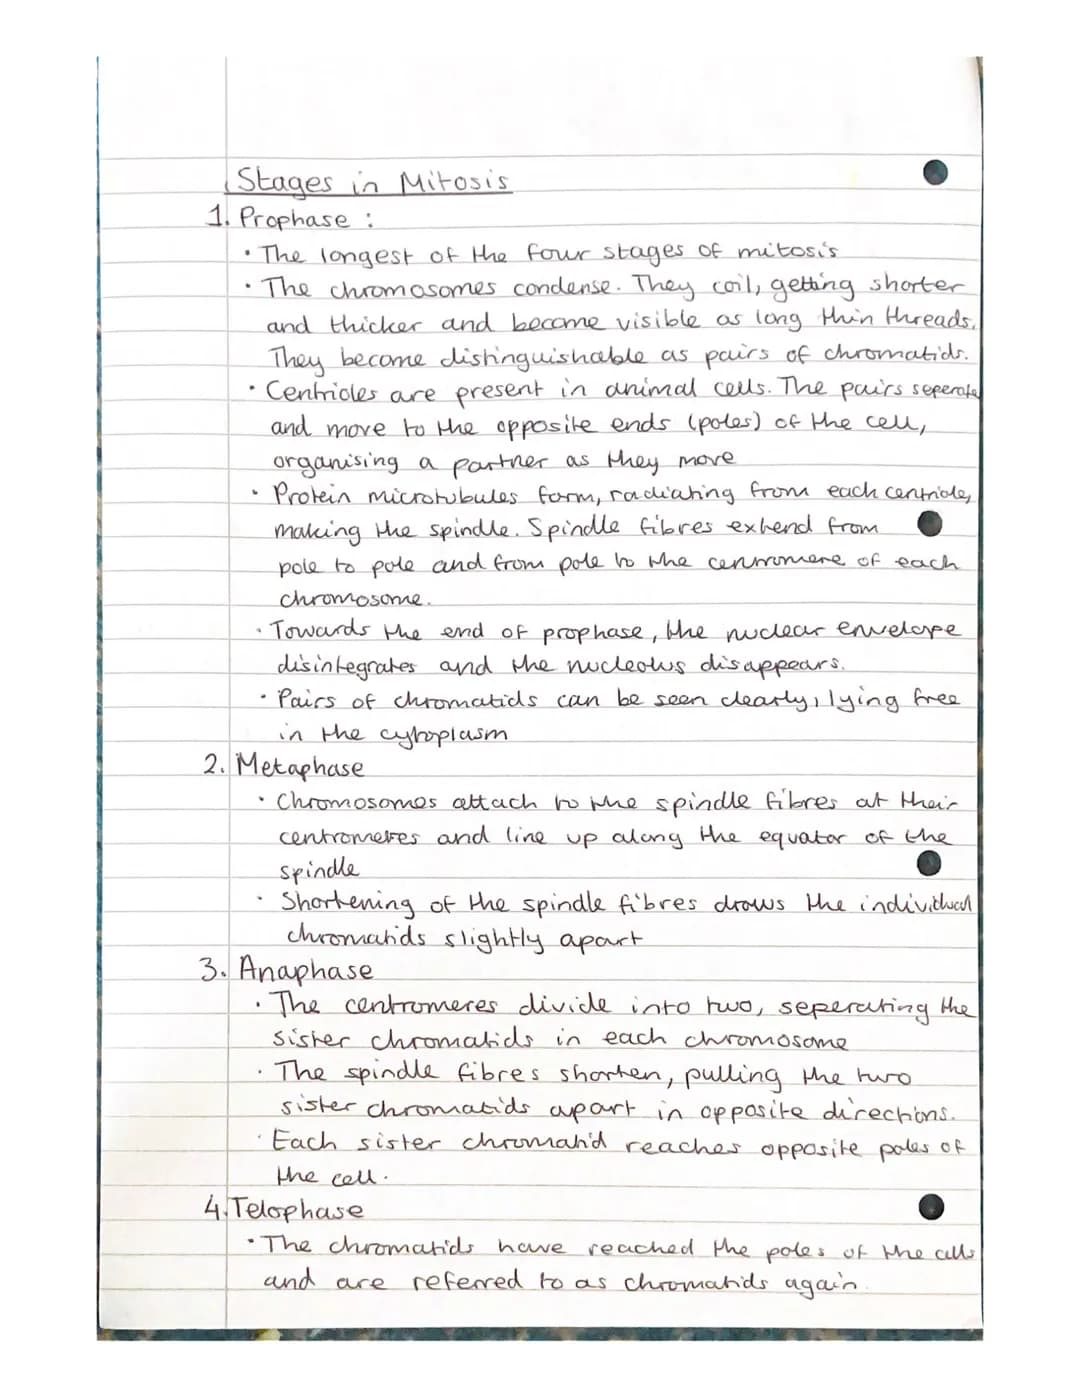 Stages in Mitosis
1. Prophase :
· The longest of the four stages of mitosis
· The chromosomes condense. They coil, getting shorter
and thicker and become visible as long thin threads.
They become distinguishable as pairs of chromatids.
· Centrioles are present in animal cells. The pairs seperate
and move to the opposite ends (poles) of the cell,
organising a partner as they move
· Protein microtubules form, radiating from each centriole,
making the spindle. Spindle fibres extend from
pole to pole and from pole to the centromere of each
chromosome.
· Towards the end of prophase, the nuclear envelope
disintegrates and the nucleolus disappears.
· Pairs of chromatids can be seen clearly, lying free
in the cytoplasm
2. Metaphase
· Chromosomes attach to the spindle fibres at their
centromeres and line up along the equator of the
spindle
· Shortening of the spindle fibres draws the individual
chromatids slightly apart
3. Anaphase
· The centromeres divide into two, seperating the
sister chromatids in each chromosome
· The spindle fibres shorten, pulling the two
sister chromatids apart in opposite directions.
· Each sister chromatid reaches opposite poles of
the cell.
4. Telophase
· The chromatids have reached the poles of the cells
and are referred to as chromatids again.